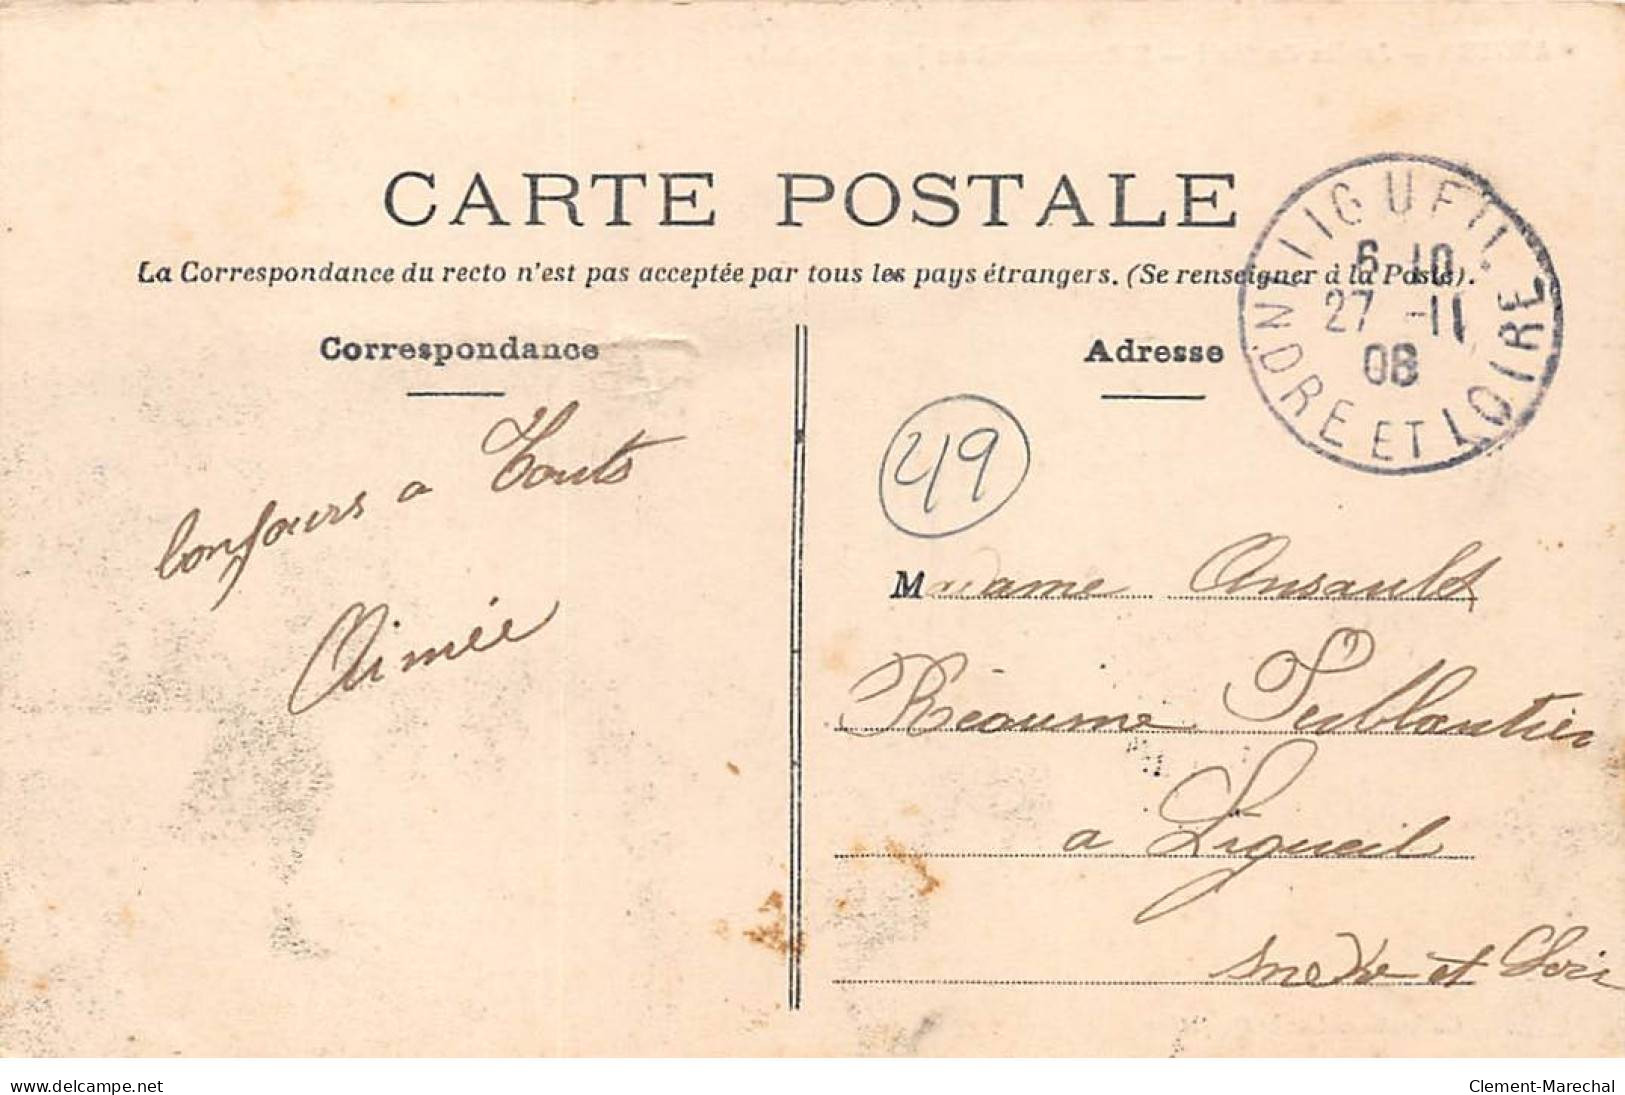 CARTE POSTALE
La Correspondance du recto n'est pas acceptée par tous les pays étrangers. (Se renseigner à la Poste).
Correspondance
Adresse
LIGUEIL
6 10
27 -11
08
INDRE ET LOIRE
49
bonjours a touts
Aimée
Madame Ansault
Réaume Ferblantier
a Ligueil
et Loir
www.delcampe.net
Clement-Marechal